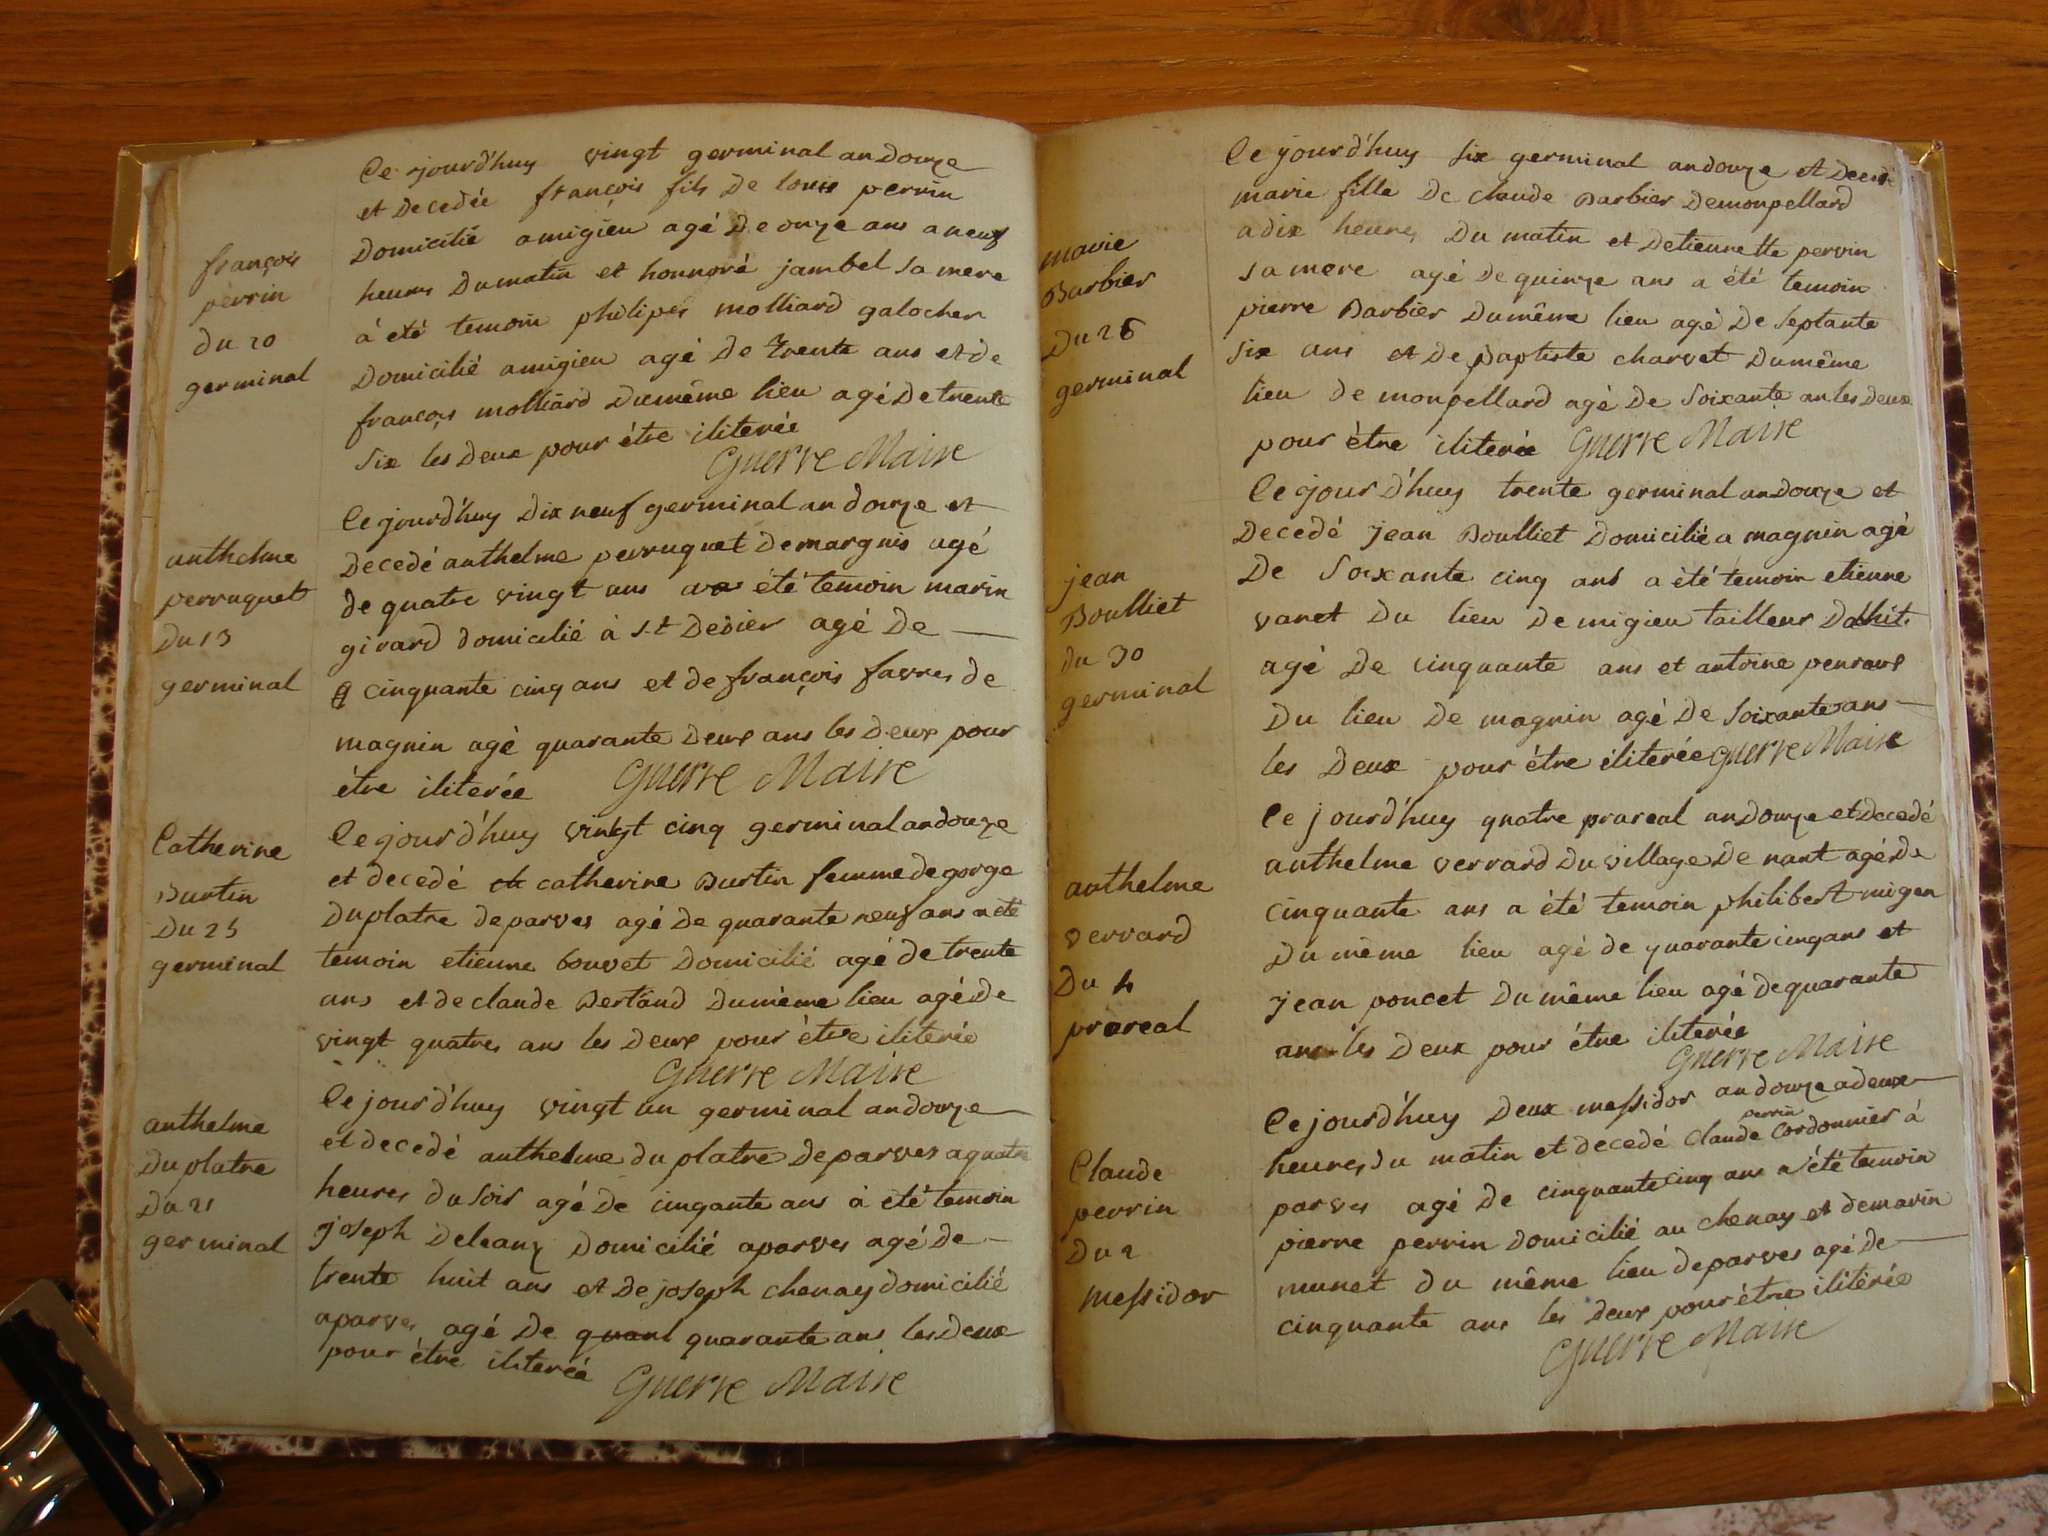 françois
perrin
du 20
germinal
Ce jourd'huy vingt germinal an douze
et decedée françois fils de louis perrin
domicilié amigieu agé de onze ans a neuf
heures du matin et honnoré jambel sa mere
á eté temoin philipes molliard galocher
domicilié amigieu agé de trente ans et de
françois molliard du même lieu agé de trente
six les deux pour étre iliterée
Guerre Maire
anthelme
perruquet
du 19
germinal
Ce jourd'huy dix neuf germinal an douze et
decedé anthelme perruquet de margnis agé
de quatre vingt ans été temoin marin
girard domicilié à st dedier agé de
cinquante cinq ans et de françois favres de
magnin agé quarante deux ans les deux pour
étre iliterée Guerre Maire
Catherine
Burtin
du 25
germinal
Ce jourd'huy vingt cinq germinal an douze
et decedé catherine Burtin femme de gorge
duplatre de parves agé de quarante neuf ans a été
temoin etienne bouvet domicilié agé de trente
ans et de claude Bertand du même lieu agé de
vingt quatres ans les deux pour étre iliterée
Guerre Maire
anthelme
Duplatre
du 21
germinal
Ce jourd'huy vingt un germinal an douze
et decedé anthelme du platre de parves a quatre
heures du soir agé de cinqante ans à eté temoin
joseph deleanz domicilié a parves agé de
trente huit ans et de joseph chenay domicilié
a parves agé de quant quarante ans les deux
pour étre iliterée Guerre Maire
marie
Barbier
du 26
germinal
Ce jourd'huy six germinal an douze et decedé
marie fille de claude Barbier de monpellard
a dix heures du matin et detiennette perrin
sa mere agé de quinze ans a été temoin
pierre Barbier du même lieu agé de septante
six ans et de Baptiste charvet du même
lieu de monpellard agé de soixante an les deux
pour étre iliterée Guerre Maire
jean
Boulliet
du 30
germinal
Ce jourd'huy trente germinal an douze et
decedé jean Boulliet domicilié a magnin agé
de soixante cinq ans a été temoin etienne
varet du lieu de migieu tailleur
agé de cinquante ans et antoine
du lieu de magnin agé de soixante ans
les deux pour étre iliterée Guerre Maire
anthelme
verrard
du 4
prareal
Ce jourd'huy quatre prareal an douze et decedé
anthelme verrard du village de nant agé de
cinquante ans a été temoin philibert migen
du même lieu agé de quarante cinq ans et
jean poncet du même lieu agé de quarante
ans les deux pour étre iliterée
Guerre Maire
Claude
perrin
du 2
messidor
Ce jourd'huy deux messidor an douze a deux
heures du matin et decedé claude perrin cordonnier á
parves agé de cinquante cinq ans a été temoin
pierre perrin domicilié au chenay et de marin
munet du même lieu de parves agé de
cinquante ans les deux pour étre iliterée
Guerre Maire